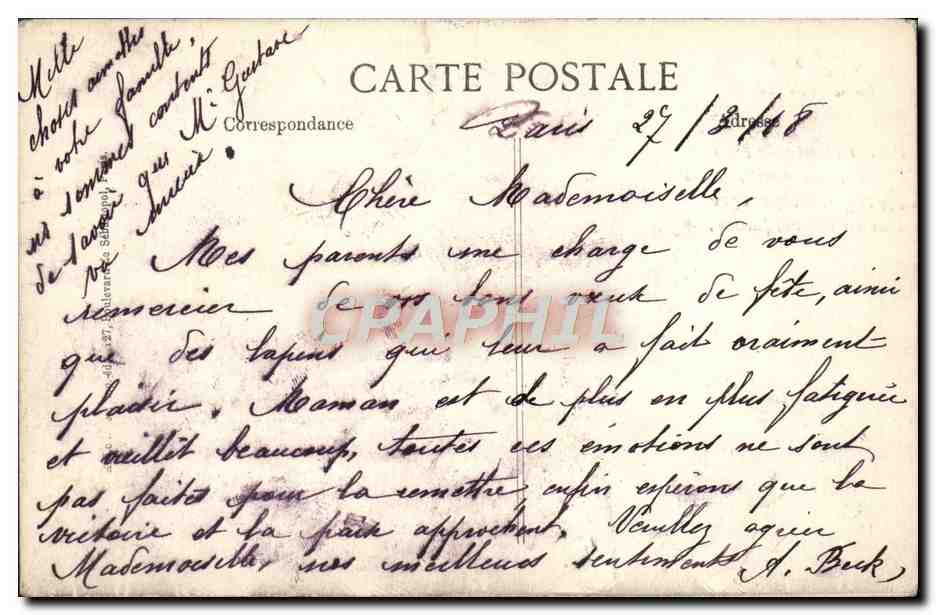 CARTE POSTALE
Correspondance
Adresse
Paris 27/3/18
Chère Mademoiselle,
Mes parents me charge de vous
remercier de vos bons vœux de fête, ainsi
que des lapens qui leur a fait vraiment
plaisir. Maman est de plus en plus fatiguée
et vieillit beaucoup, toutes ces émotions ne sont
pas faites pour la remettre enfin espérons que la
victoire et la paix approchent. Veuillez agréer
Mademoiselle, nos meilleurs sentiments A. Beck,
Mille
choses aimables
à votre famille,
ns sommes contents
de savoir que Mr Gustave
va mieux.
127, Boulevard de Sébastopol
CPARAMA